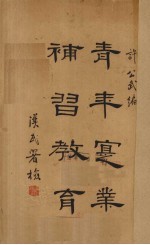 許公武編
青年寔業
補習教育
漢民署檢